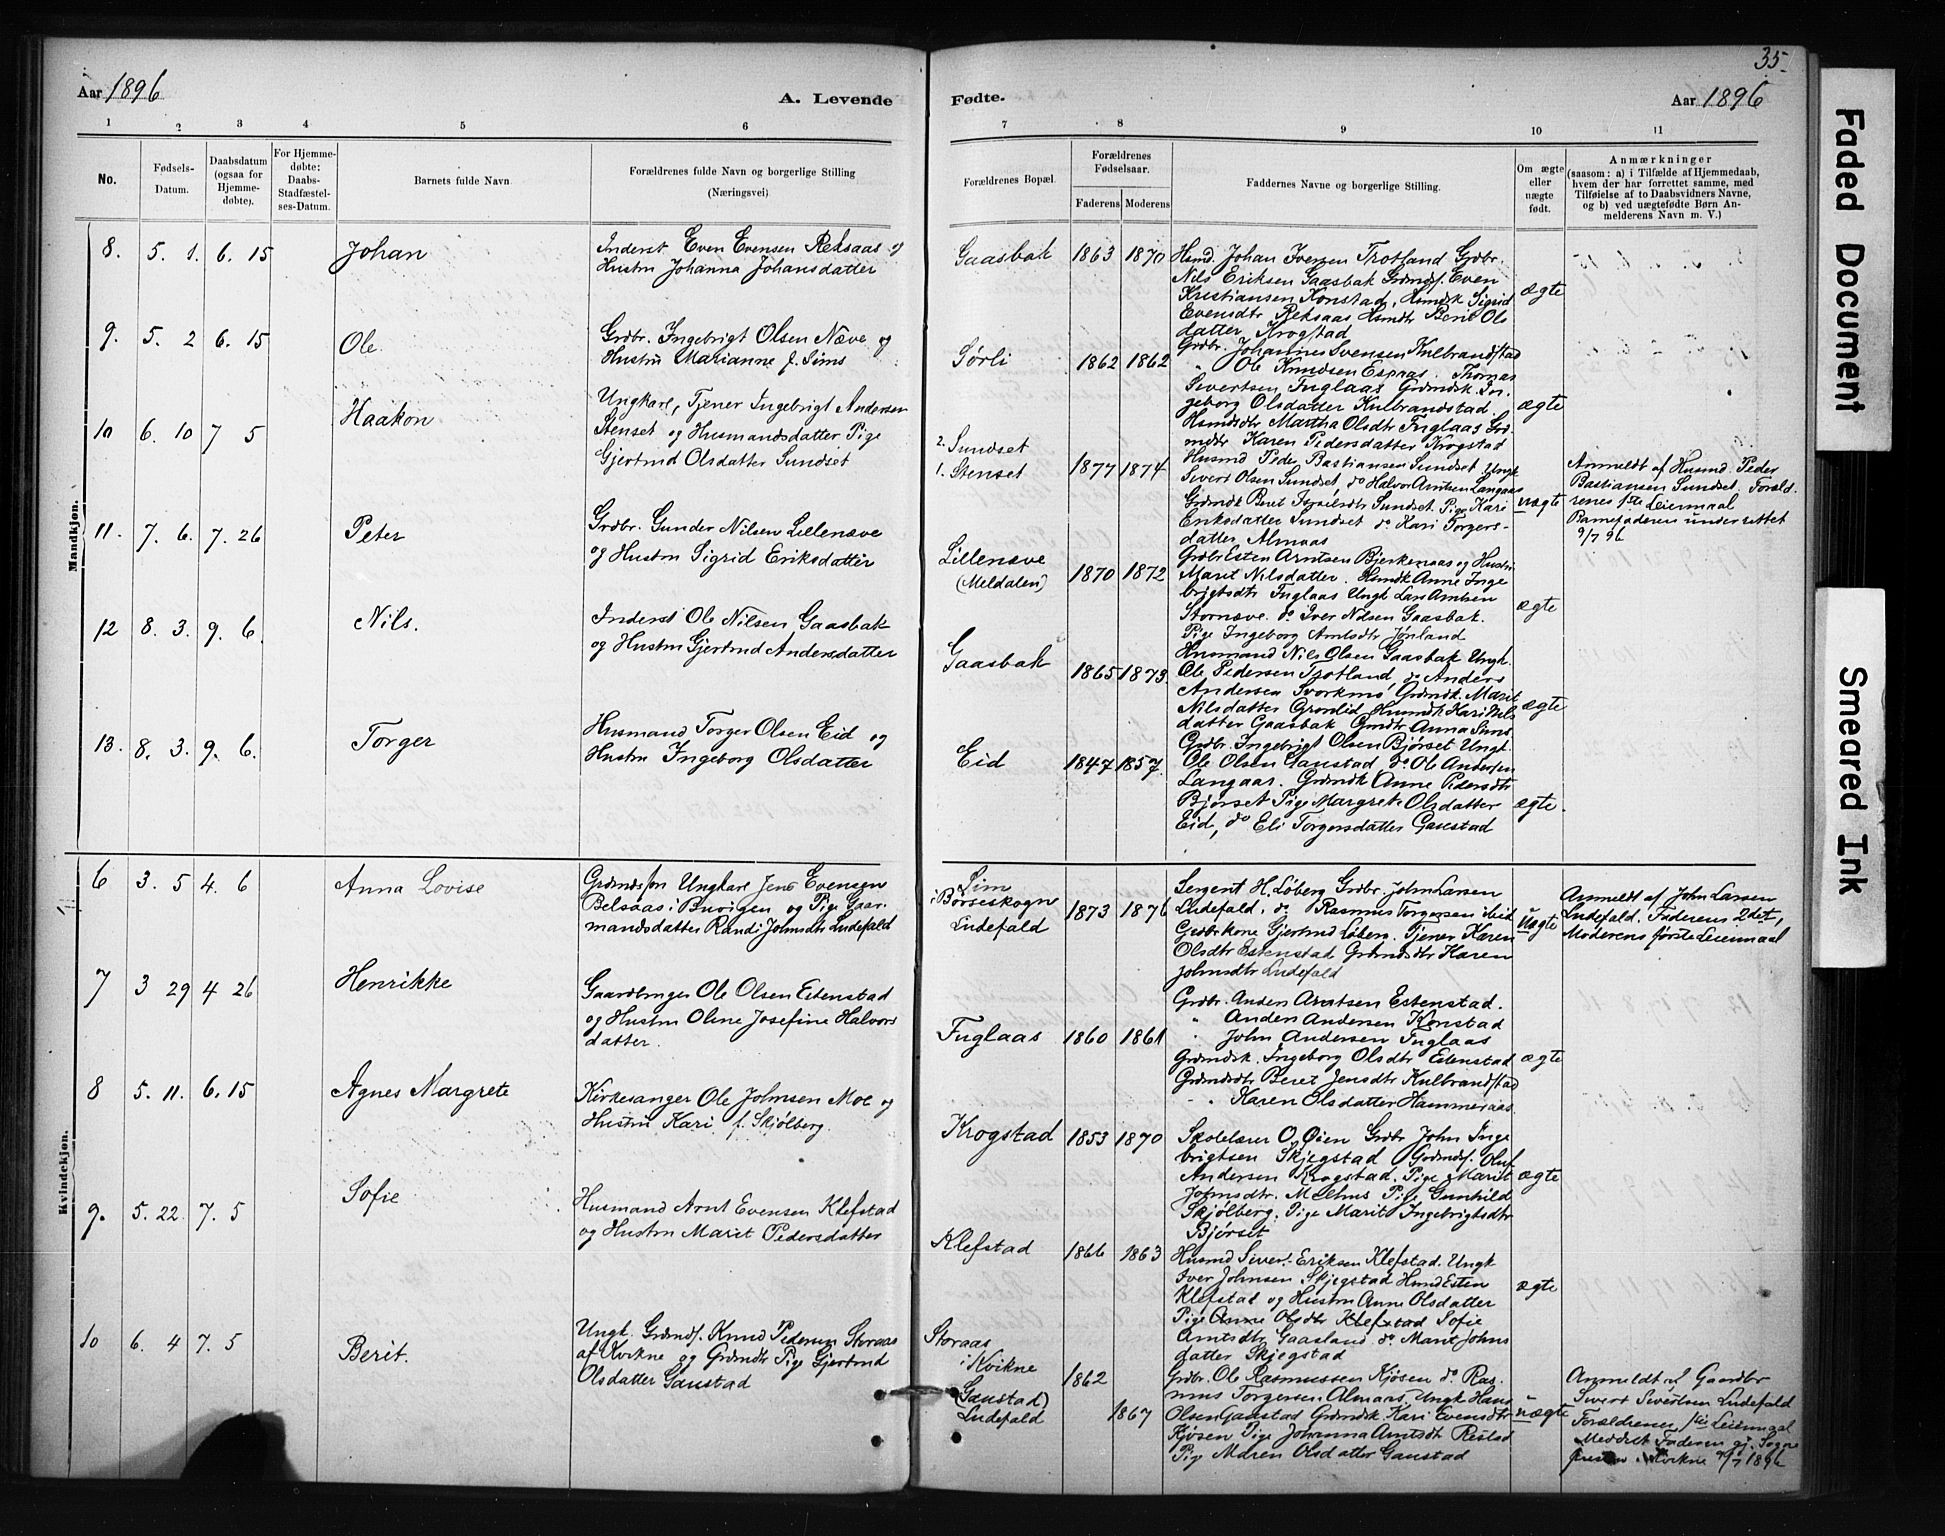 35.
Aar 1896
A. Levende
Fødte.
Aar 1896
1 2 3 4 5 6
7 8 9 10 11
No.
Fødsels-Datum.
Daabsdatum (ogsaa for Hjemme-døbte).
For Hjemme-døbte: Daabs-Stadfæstel-ses-Datum.
Barnets fulde Navn.
Forældrenes fulde Navn og borgerlige Stilling (Næringsvei).
Forældrenes Bopæl.
Forældrenes Fødselsaar.
Faderens Moderens
Faddernes Navne og borgerlige Stilling.
Om ægte eller uægte født.
Anmærkninger
(saasom: a) i Tilfælde af Hjemmedaab,
hvem der har forrettet samme, med
Tilføielse af to Daabsvidners Navne,
og b) ved uægtefødte Børn An-
melderens Navn m. V.)
Mandkjøn.
8. 5. 1. 6. 15 Johan
Inderst Even Evensen Reksaas og
Hustru Johanna Johansdatter
Gaasbak 1863 1870
Hsmd. Johan Iversen Trotland Grdbr.
Nils Eriksen Gaasbak Grdmds. Even
Kristiansen Konstad, Hsmdk Sigrid
Evensdtr Reksaas Hsmdtr Berit Ols
datter Krogstad
ægte
9. 5. 2 6. 15 Ole
Grdbr. Ingebrigt Olsen Næve og
Hustru Marianne f. Sims
Sørli 1862 1862
Grdbr. Johannes Svensen Kulbrandstad
" Ole Knudsen Espaas. Thomas
Sivertsen Fuglaas Grdmdsk. In-
geborg Olsdatter Kulbrandstad.
Hsmdsdtr Martha Olsdtr Fuglaas Grd-
mdtr Karen Pedersdatter Krogstad
ægte
10 6. 10 7 5 Haakon
Ungkarl, Tjener Ingebrigt Andersen
Stenset og Husmandsdatter Pige
Gjertrud Olsdatter Sundset
2. Sundset
1. Stenset 1877 1874
Husmd Peder Bastiansen Sundset Ungk
Sivert Olsen Sundset do Halvor Arntsen Langaas
Grdmdk Beret Israelsdtr Sundset Pige Kari
Eriksdatter Sundset do Kari Torgers-
datter Almaas
uægte
Anmeldt af Husmd. Peder
Bastiansen Sundset. Foræld-
renes 1ste Leiermaal
Barnefaderen underrettet
9/7 96
11. 7. 6. 7. 26 Peter
Grdbr. Gunder Nilsen Lillenæve
og Hustru Sigrid Eriksdatter
Lillenæve
(Meldalen) 1870 1872
Grdbr Esten Arntsen Bjerkenaas og Hustru
Marit Nilsdatter. Hsmdk Anne Inge
brigtsdtr Fuglaas Ungk Lars Arntsen
Stornæve. do Iver Nilsen Gaasbak.
Pige Ingeborg Arntsdtr Jønland
ægte
12 8. 3. 9. 6. Nils.
Inderst Ole Nilsen Gaasbak
og Hustru Gjertrud Andersdatter
Gaasbak 1865 1873.
Husmand Nils Olsen Gaasbak Ungk.
Ole Pedersen Trotland do Anders
Andersen Svorkmo Grdmdk. Marit
Nilsdatter Grønlid Husmdk Kari Nils
datter Gaasbak Grmdtr Anna Sims
ægte
13. 8. 3. 9. 6. Torger
Husmand Torger Olsen Eid og
Hustru Ingeborg Olsdatter
Eid 1847 1857.
Grdbr. Ingebrigt Olsen Bjørset Ungk.
Ole Olsen Gaustad do Ole Andersen
Langaas. Grdmdk Anne Pedersdtr
Bjørset Pige Margrete Olsdatter
Eid, do Eli Torgersdatter Gaustad
ægte.
Kvindekjøn.
6 3. 5 4. 6 Anna Lovise
Grdmdssøn Ungkarl Jens Evensen
Belsaas i Buvigen og Pige Gaar-
mandsdatter Randi Johnsdtr Ludefald
Sim
i Børseskogn
Ludefald 1873 1876
Sergent H. Løberg Grdbr. John Larsen
Ludefald, do Rasmus Torgersen ibid
Grdbrkone Gjertrud Løberg. Tjener Karen
Olsdtr Estenstad Grdmdsdtr Karen
Johnsdtr Ludefald
Uægte
Anmeldt af John Larsen
Ludefald. Faderens 2det,
Moderens første Leiermaal
7 3 29 4 26 Henrikke
Gaardbruger Ole Olsen Estenstad
og Hustru Oline Josefine Halvors
datter.
Fuglaas 1860 1861
Grdbr. Anders Arntsen Estenstad.
" Anders Andersen Konstad
" John Andersen Fuglaas
Grdmdsk. Ingeborg Olsdtr Estenstad
Grdmdsdtr Beret Jensdtr Kulbrandstad
" Karen Olsdatter Hammeraas
ægte
8 5. 11. 6. 15 Agnes Margrete
Kirkesanger Ole Johnsen Moe og
Hustru Kari f. Skjølberg.
Krogstad 1853 1870
Skolelærer O. Øien Grdbr John Inge
brigtsen Skjegstad Grdmds. Oluf
Andersen Krogstad. Pige Marit
Johnsdtr. Melhus Pige Gunhild
Skjølberg. Pige Marit Ingebrigtsdtr
Bjørset
ægte
9. 5. 22. 7. 5 Sofie
Husmand Arnt Evensen Klefstad
og Hustru Marit Pedersdatter
Klefstad 1866 1863
Husmd Sivert Eriksen Klefstad. Ungk
Iver Johnsen Skjegstad Hsmd Esten
Klefstad og Hustru Anne Olsdatter
Pige Anne Olsdtr Klefstad Sofie
Arntsdtr Gaasland do Marit Johns
datter Skjegstad
ægte
10 6. 4 7. 5 Berit.
Ungk. Grdmds. Knud Pedersen Storaas
af Kvikne og Grdmdtr Pige Gjertrud
Olsdatter Gaustad
Storaas
i Kvikne
(Gaustad)
Ludefald 1862 1867
Grdbr. Ole Rasmussen Kjøsen do Ras-
mus Torgersen Almaas, Ungk Hans
Olsen Gaustad Grdmdk. Kari Evensdtr
Kjøsen Pige Johanna Arntsdtr Restad
Pige Maren Olsdatter Gaustad
uægte
Anmeldt af Gaardbr
Sivert Sivertsen Ludefald
Forældrenes 1ste Leiermaal
Meddelt Faderen gj. Sogne
presten i Kvikne 9/7 1896
Faded Document
Smeared Ink